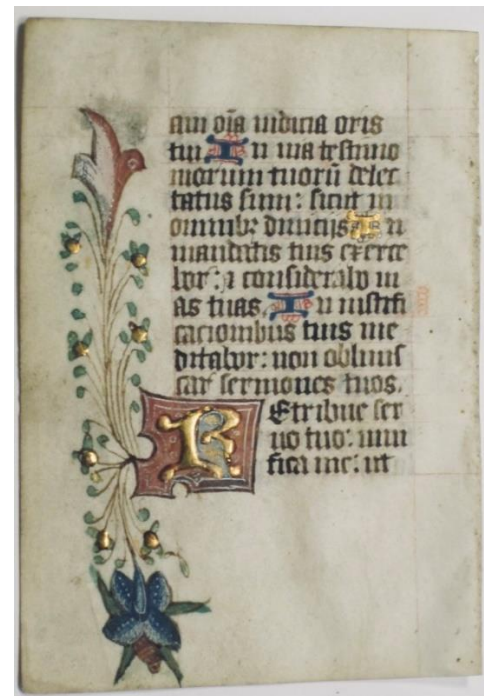 aui oīa iudicia oris
tui In uia testimo
niorum tuorū delec
tatus sum: sicut in
omnibꝫ diuiciis In
mandatis tuis exerce
bor: ⁊ considerabo ui
as tuas. In iustifi
cacionibus tuis me
ditabor: non obliuis
car sermones tuos.
REtribue ser
uo tuo: uiui
fica me: ut